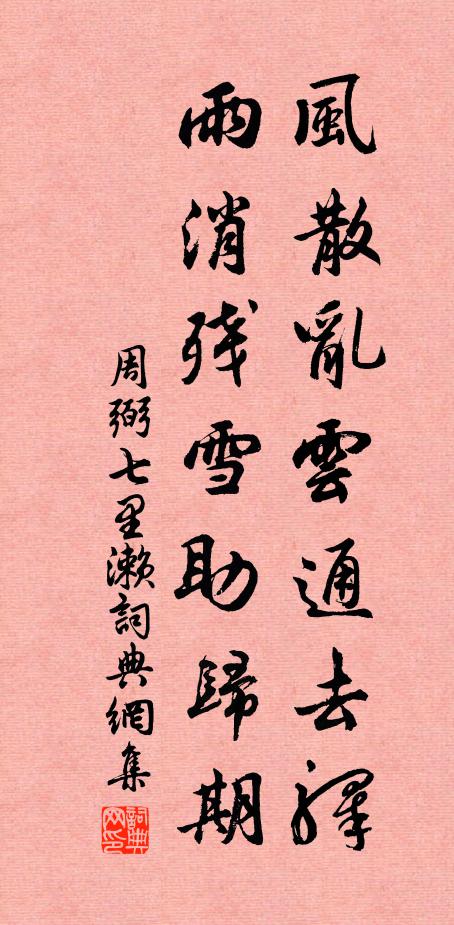 風散亂雲通去驛
雨消殘雪助歸期
周弼七里瀨詞典網集
詞典网印